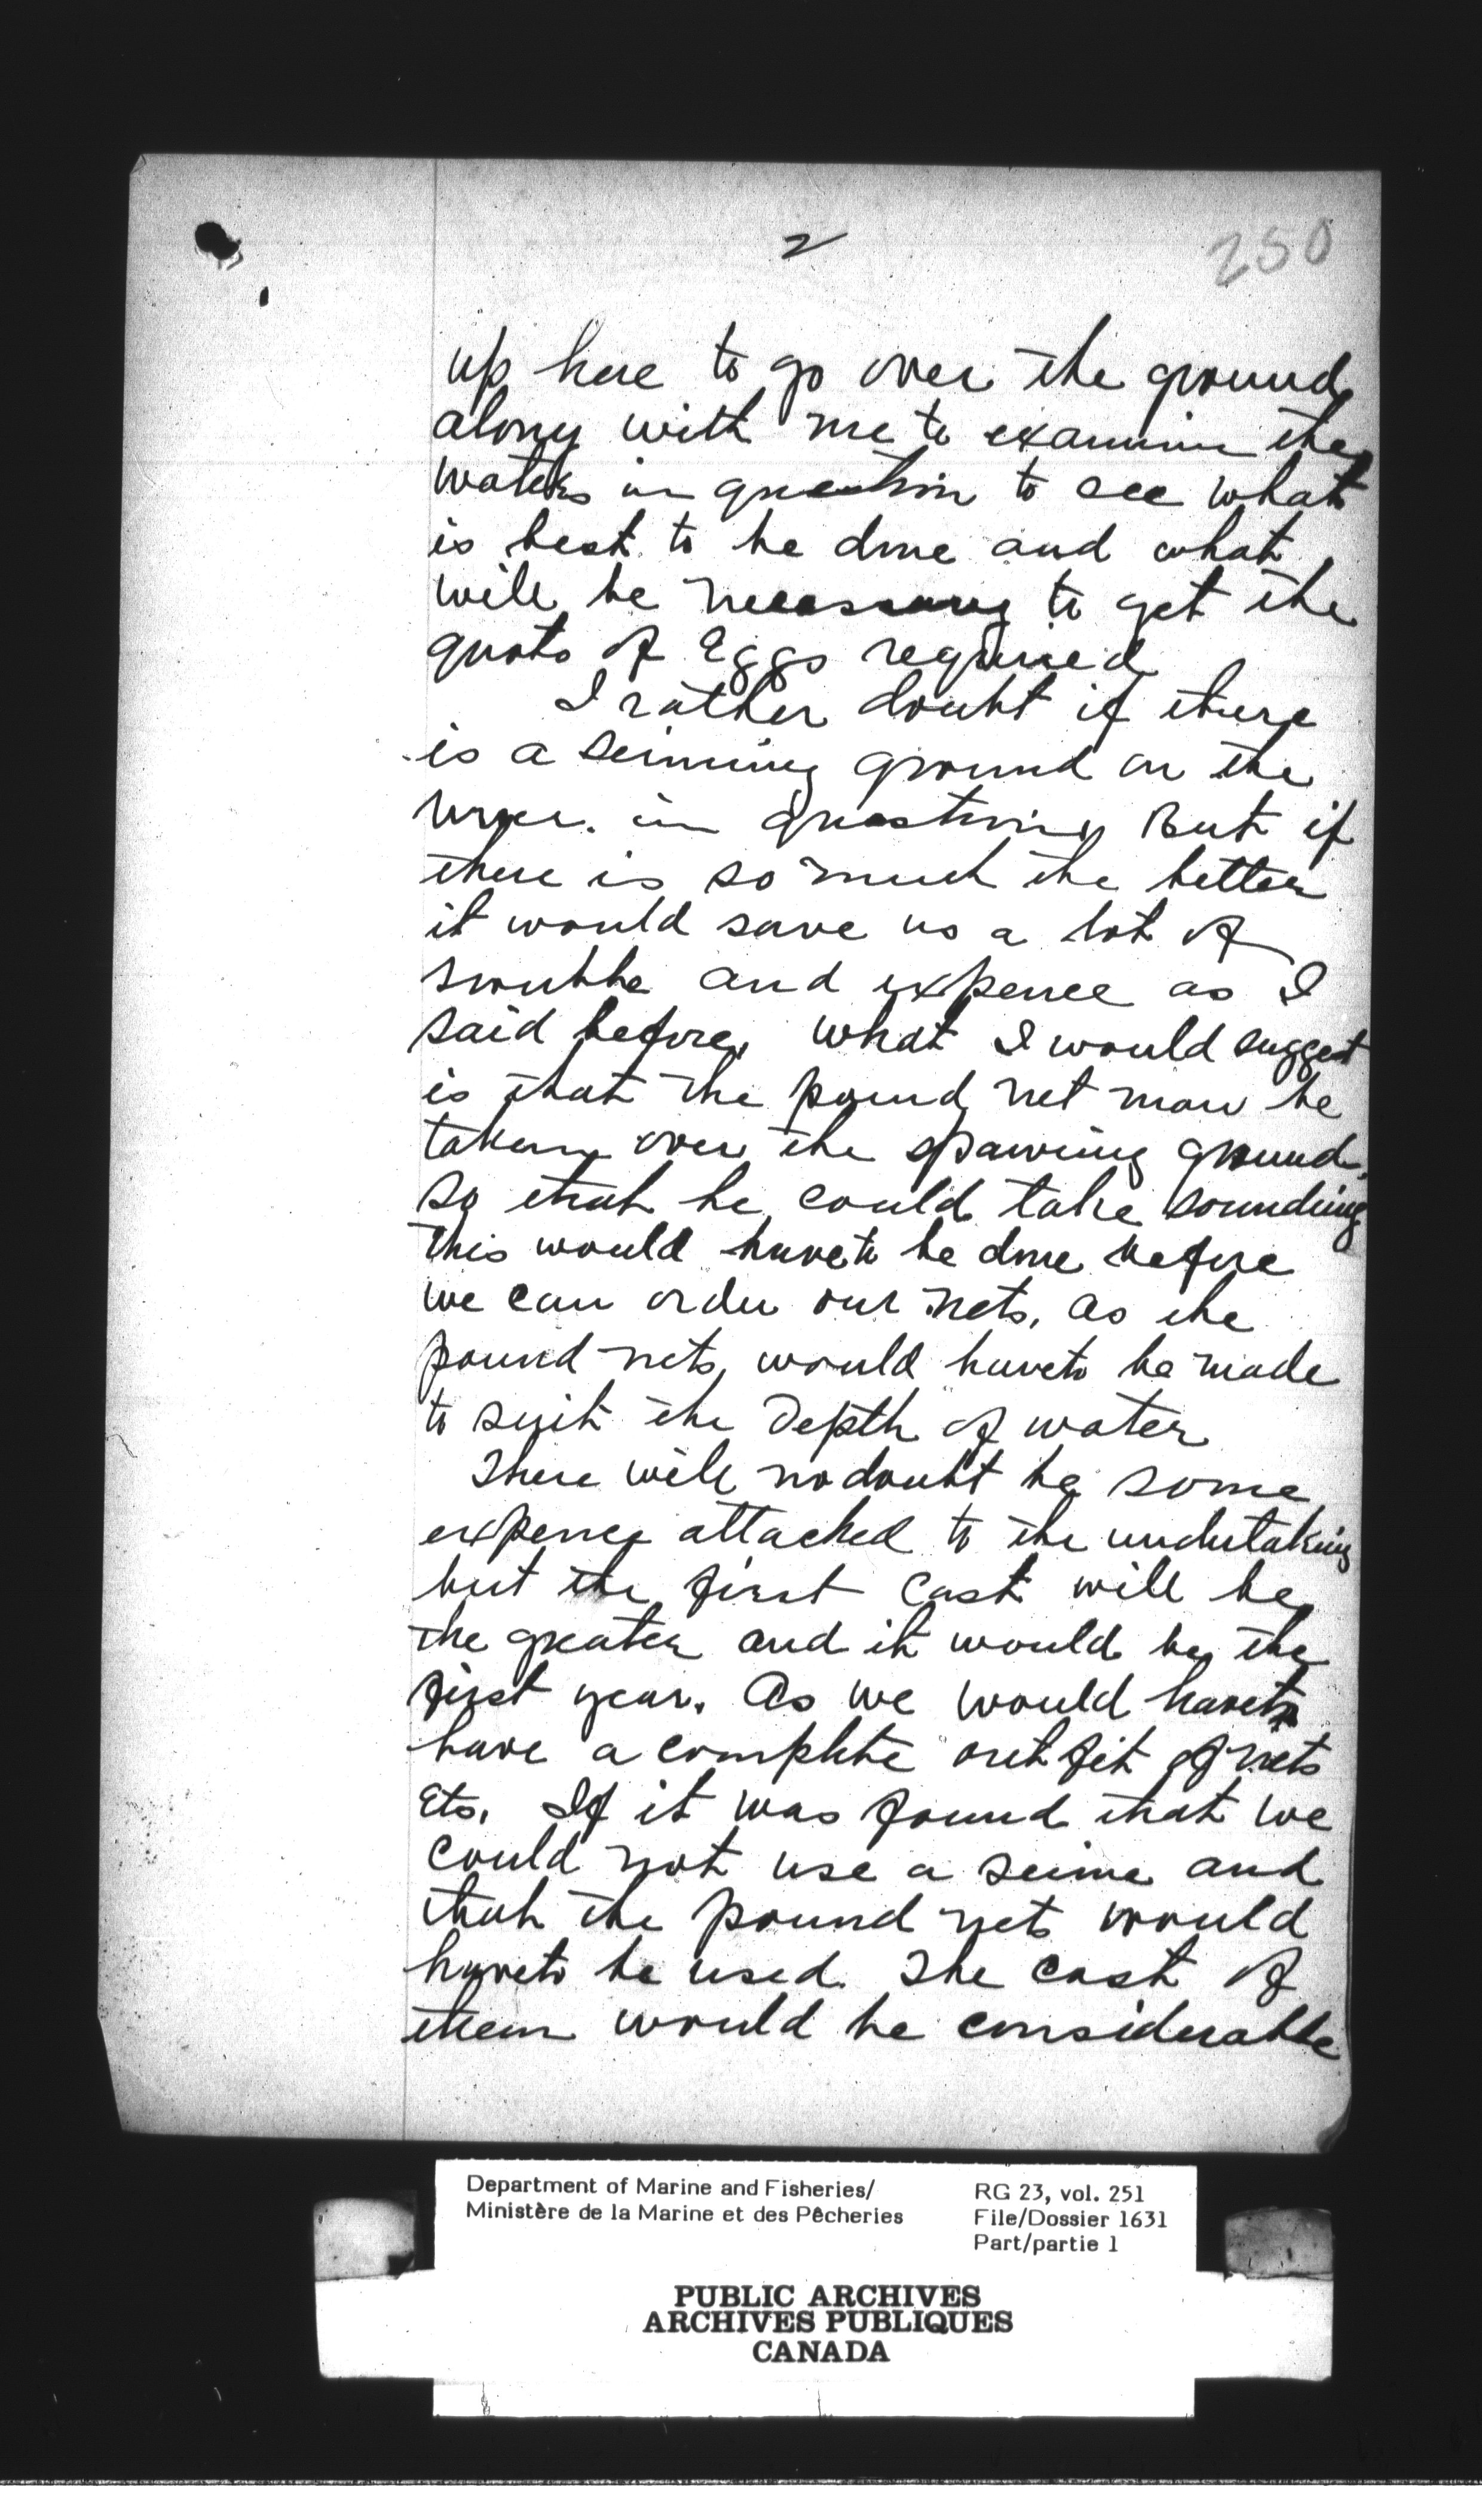 2
250
up here to go over the ground
along with me to examine the
waters in question to see what
is best to be done and what
will be necessary to get the
quota of Eggs required
I rather doubt if there
is a seinning ground on the
in question, But if
there is so much the better
it would save us a lot of
trouble and expence as I
said before, what I would suggest
is that the pound net man be
taken over the spawning ground,
so that he could take sounding
this would have to be done before
we can order our nets, as the
pound nets, would have to be made
to suit the Depth of water
There will no doubt be some
expence attached to the undertaking
but the first cost will be
the greater and it would be the
first year. As we would have to
have a complete outfit of nets
Etc. If it was found that we
could not use a seine and
that the pound nets would
have to be used. The cost of
them would be considerable
Department of Marine and Fisheries/
Ministère de la Marine et des Pêcheries
RG 23, vol. 251
File/Dossier 1631
Part/partie 1
PUBLIC ARCHIVES
ARCHIVES PUBLIQUES
CANADA